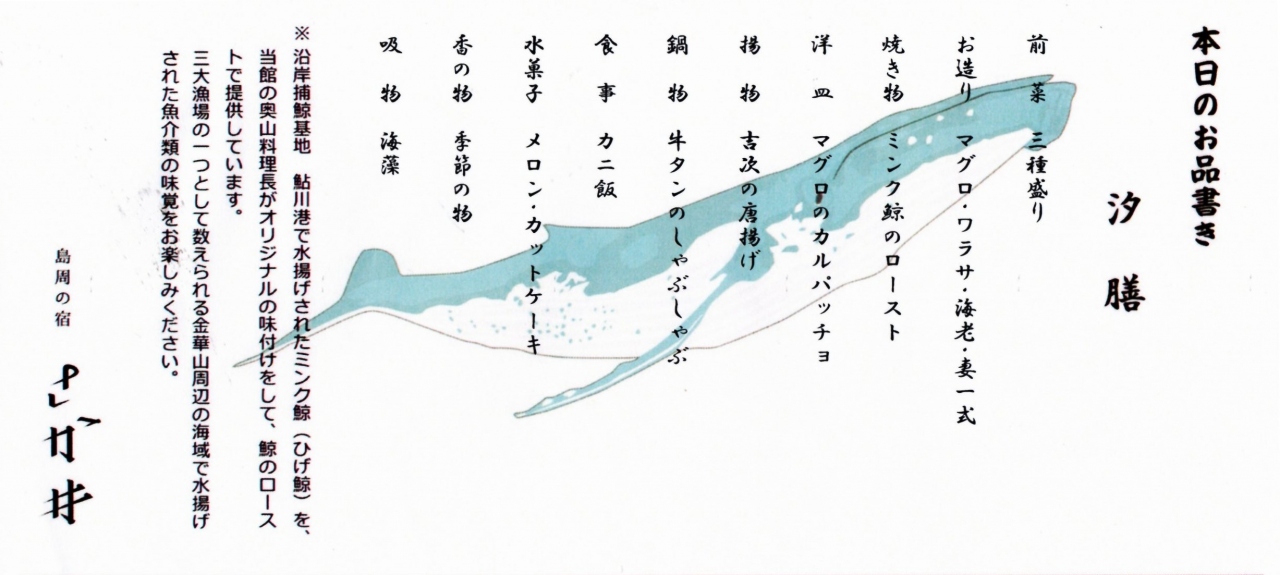 本日のお品書き
汐 膳
前 菜 三種盛り
お造り マグロ・ワラサ・海老・妻一式
焼き物 ミンク鯨のロースト
洋 皿 マグロのカルパッチョ
揚 物 吉次の唐揚げ
鍋 物 牛タンのしゃぶしゃぶ
食 事 カニ飯
水菓子 メロン・カットケーキ
香の物 季節の物
吸 物 海藻
※沿岸捕鯨基地 鮎川港で水揚げされたミンク鯨(ひげ鯨)を、
当館の奥山料理長がオリジナルの味付けをして、鯨のロース
トで提供しています。
三大漁場の一つとして数えられる金華山周辺の海域で水揚げ
された魚介類の味覚をお楽しみください。
島周の宿
さか井